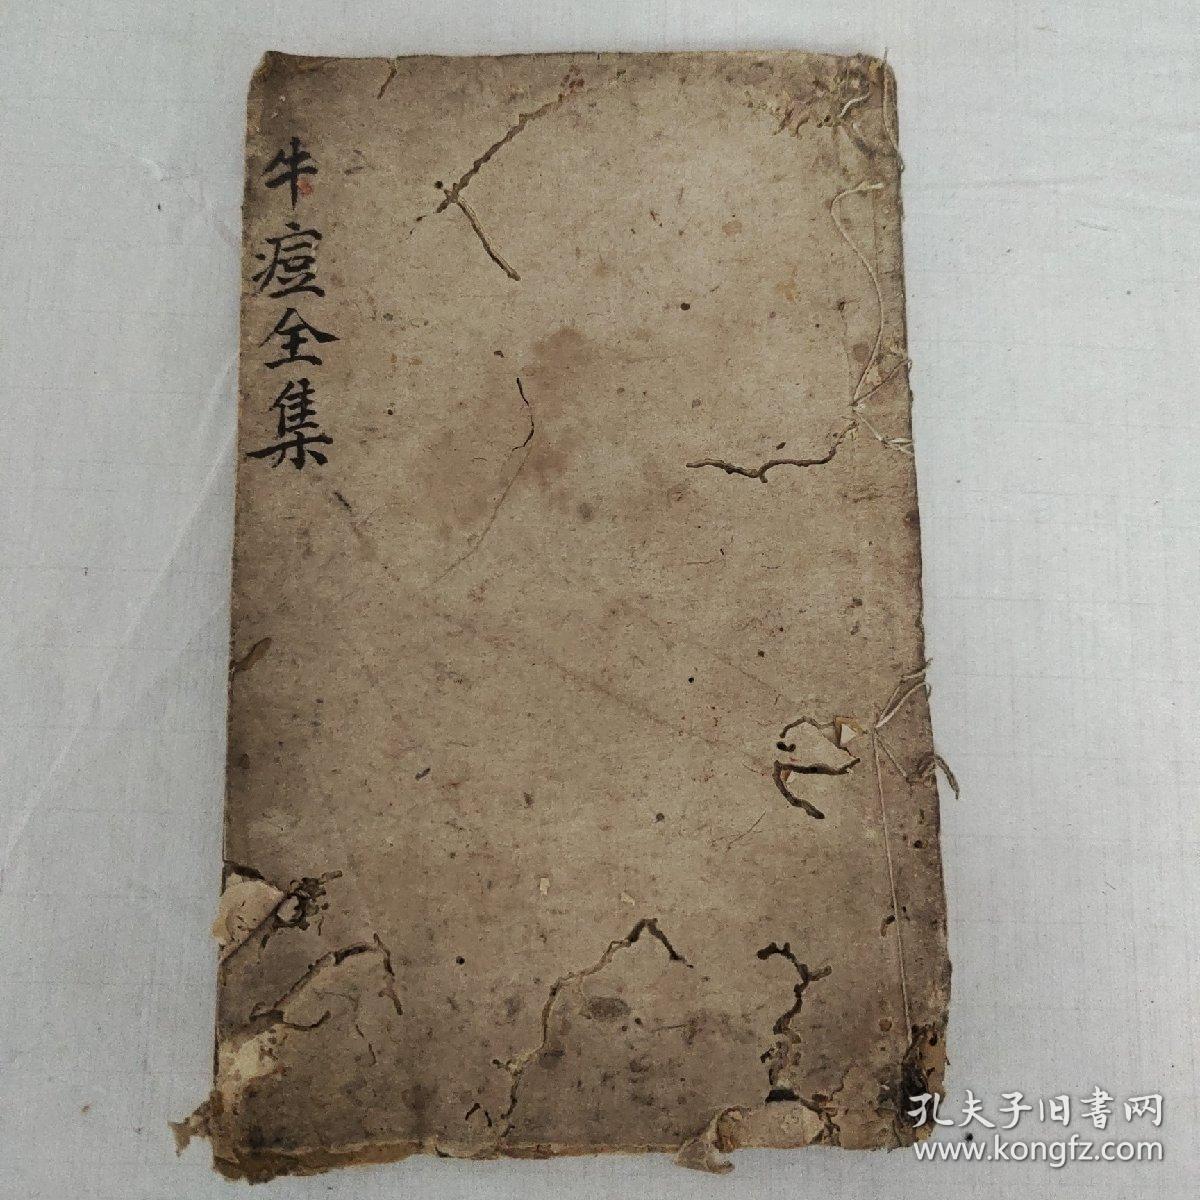 牛痘全集
孔夫子旧書网
www.kongfz.com